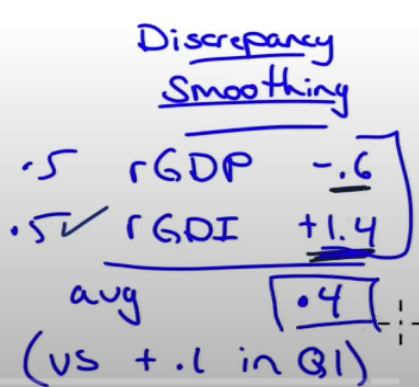 Discrepancy
Smoothing
.5 rGDP -.6
.5✓ rGDI +1.4
avg .4
(vs +.1 in Q1)